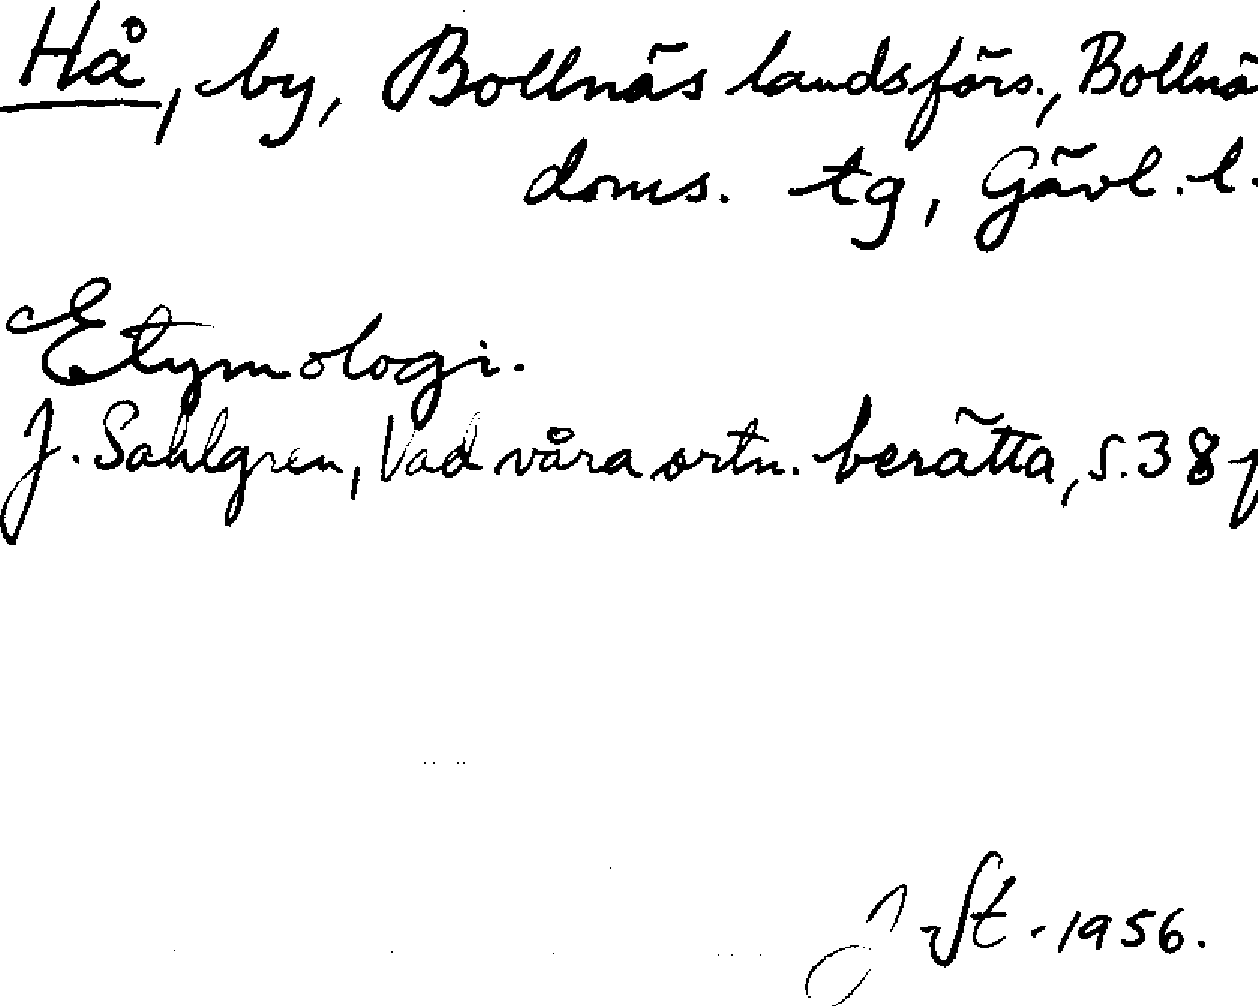 Hå, by, Bollnäs landsförs., Bollnä
doms. tg, Gävl. l.
Etymologi.
J. Sahlgren, Vad våra ortn. berätta, s. 38 f
J St. 1956.